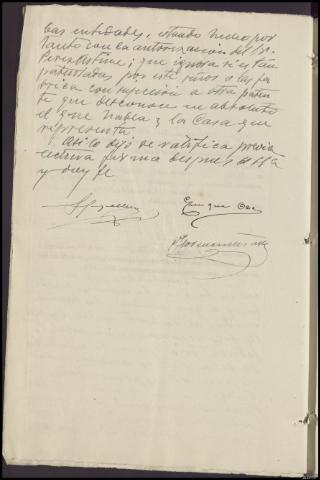 las entidades, estando hecho por
tanto con la autorización del Sr.
que ignora si están
patentadas por este ó las fa-
brica con sujeción a otra paten-
te que desconoce en absoluto
el que habla y la Casa que
representa.
Así lo dijo se ratifica previa
lectura firma despues de SSª
y doy fé
Enrique